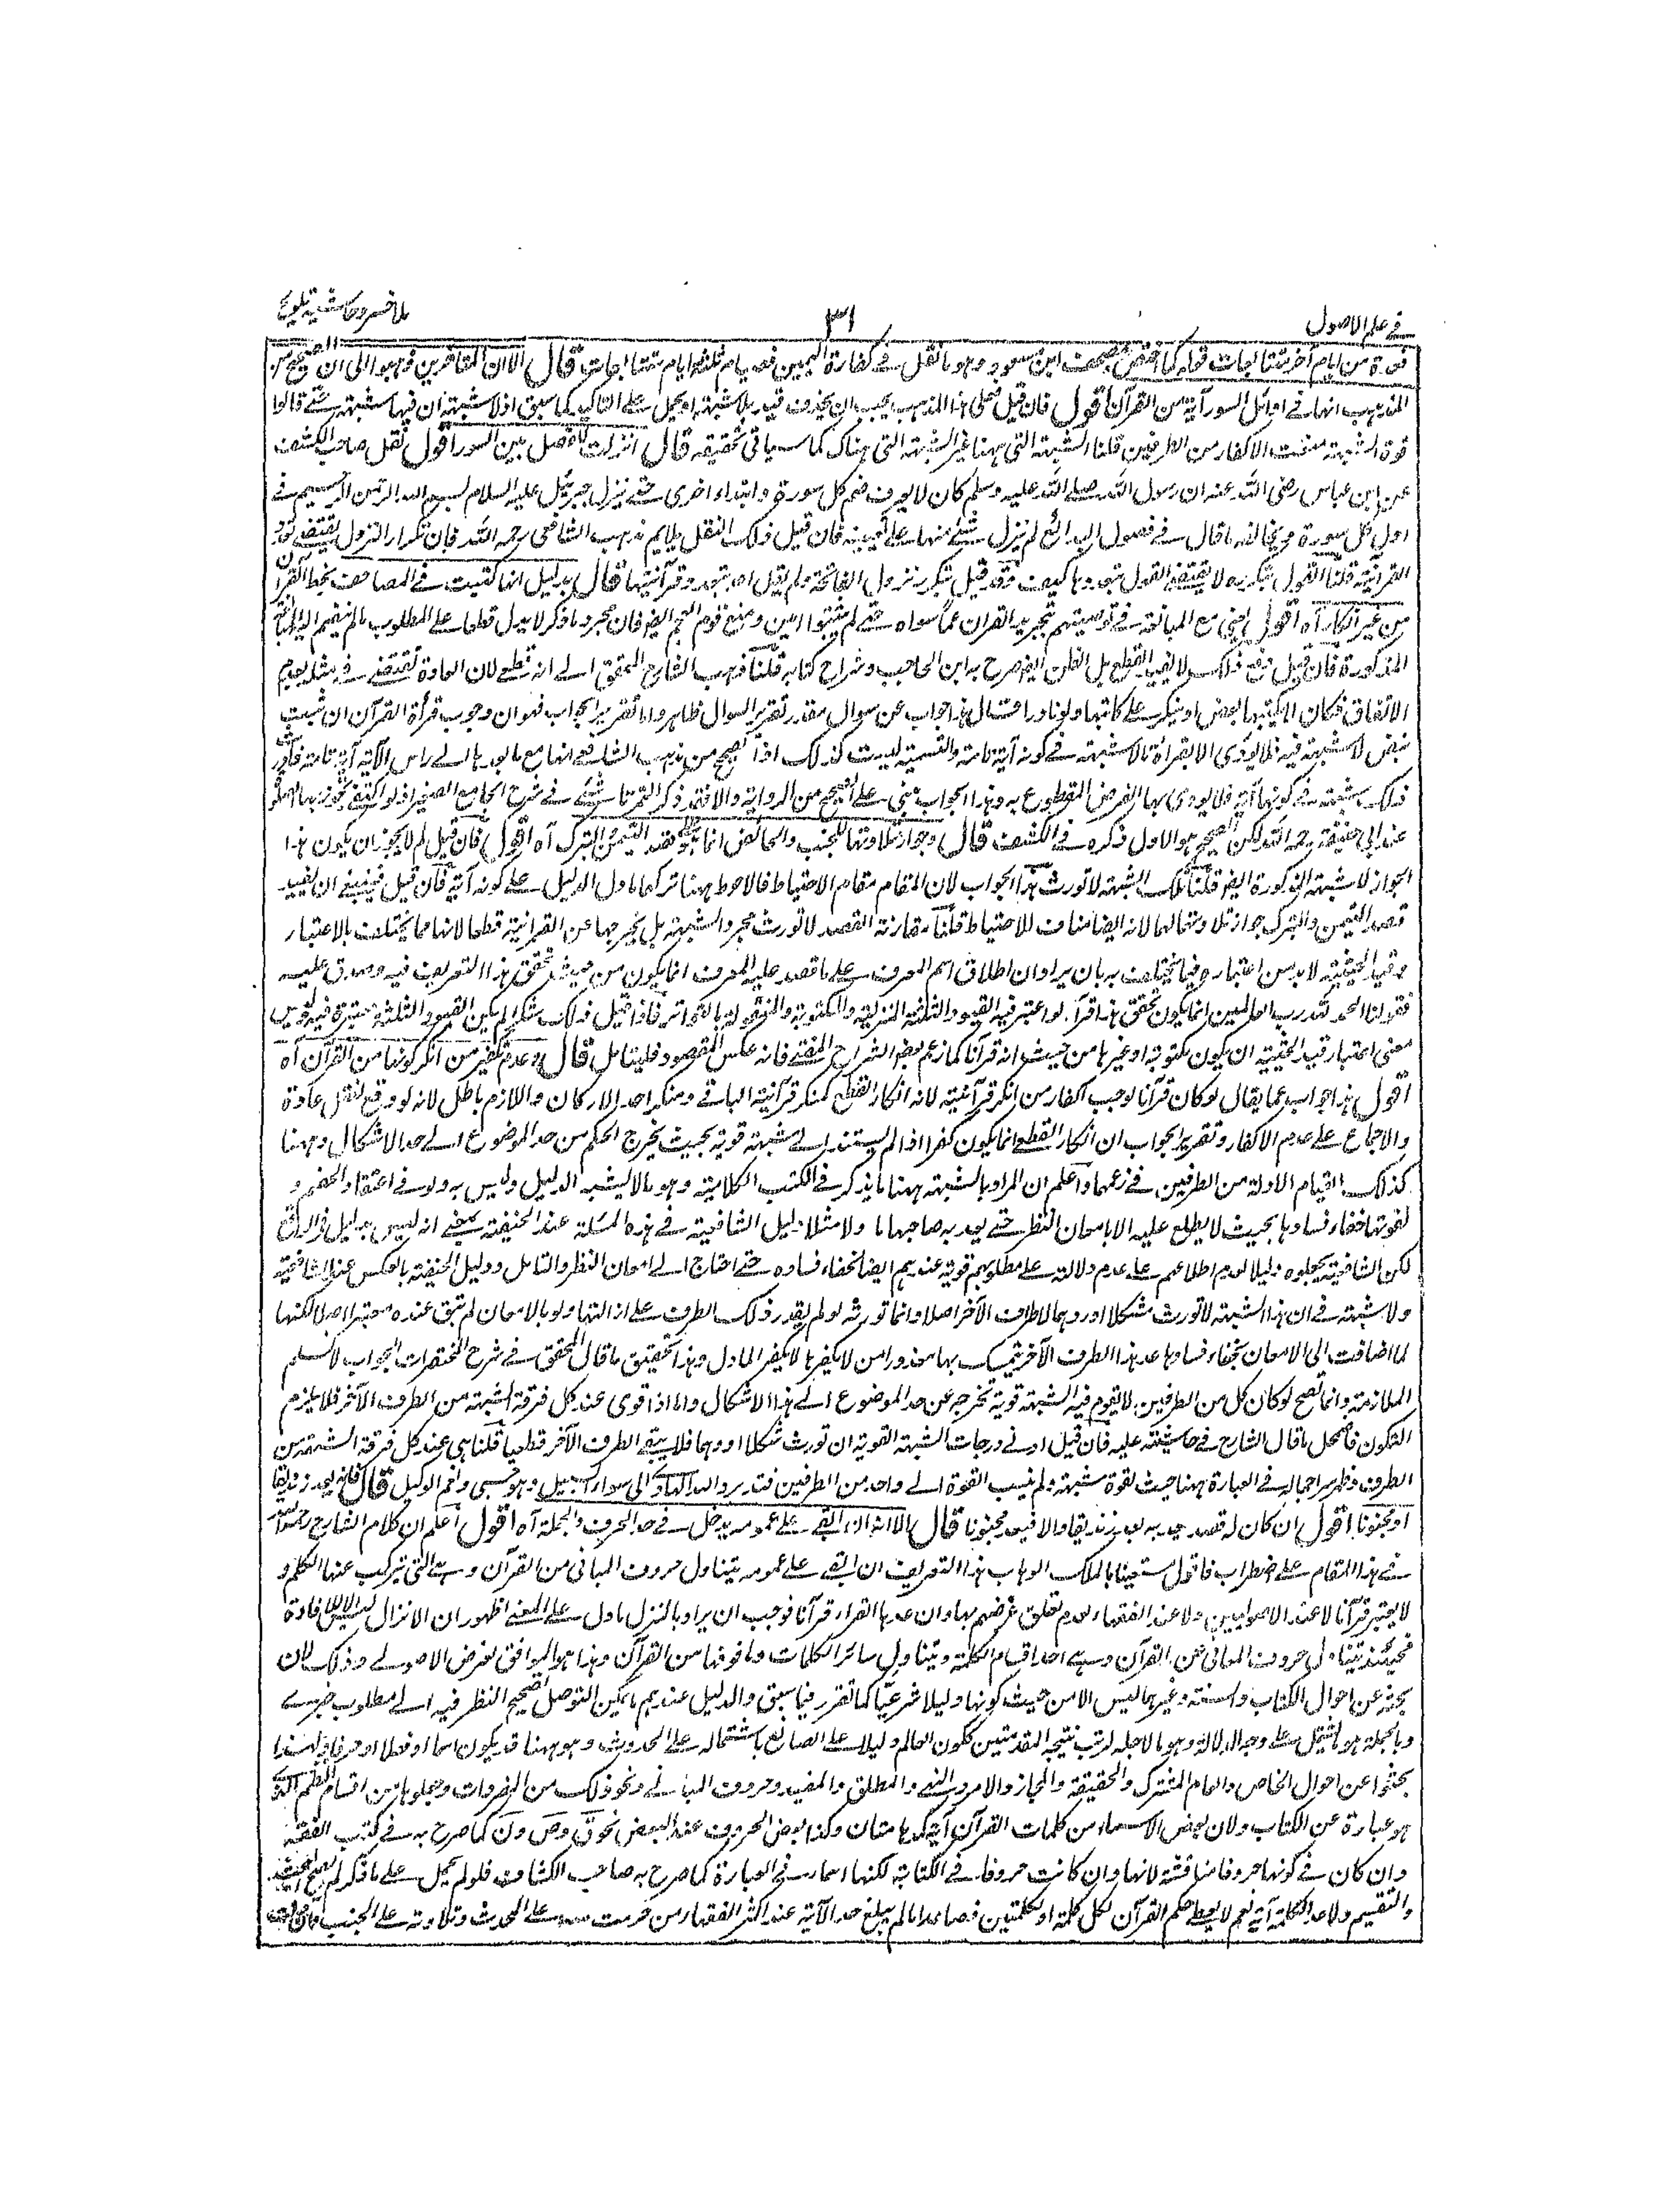 في علم الاصول
٣١
ملا خسرو حاشية تلويح
فعدة من ايام أخر متتابعات قوله كما اختص بمصحف ابن مسعود وهو ما نقل في كفارة اليمين فصيام ثلثة ايام متتابعات قال الا ان المتاخرين ذهبوا الى ان الصحيح من
المذهب انها في اوائل السور آية من القرآن اقول فان قيل فعلى هذا المذهب يجب ان يحذف قيد بلا شبهة او يحمل على التاكيد كما سبق اذ لا شبهة ان فيها شبهة حتى قالوا
قوة الشبهة منعت الاكفار من الطرفين قلنا الشبهة التي ههنا غير الشبهة التي هناك كما سياتي تحقيقه قال انزلت للفصل بين السور اقول نقل صاحب الكشف
عن ابن عباس رضي الله عنه ان رسول الله صلى الله عليه وسلم كان لا يعرف ختم كل سورة وابتداء اخرى حتى ينزل جبرئيل عليه السلام ببسم الله الرحمن الرحيم في
اول كل سورة ويخالفه ما قال في فصول البدائع لم ينزل شئ منها على تعيينه فان قيل ذلك النقل يلايم مذهب الشافعي رحمه الله فان تكرار النزول يقتضي تعدد
القرآنية قلنا القول بتكريره لا يقتضي القول بتعددها كيف وقد قيل بتكرر نزول الفاتحة ولم يقل احد بتعدد قرآنيتها قال بدليل انها كتبت في المصاحف بخط القرآن
من غير انكار آه اقول يعني مع المبالغة في توصيتهم بتجريد القرآن عما سواه حتى لم يثبتوا امين ومنع قوم العجم ايضا فان مجرد ما ذكر لا يدل قطعا على المطلوب ما لم ينضم اليه المبالغة
المذكورة فان قيل فمع ذلك لا يفيد القطع بل الظن ايضا صرح به ابن الحاجب وشراح كتابه قلنا ذهب الشارح المحقق الى انه قطعي لان العادة تقتضي في مثله بعدم
الاتفاق فكان لا يكتبها بعض او ينكر على كاتبها ولو نادرا قال هذا جواب عن سوال مقدر تقرير السوال ظاهر واما تقرير الجواب فهو ان وجوب قرأة القرآن ان ثبت
بنص لا شبهة فيه فلا يودى الا بقراءة ما لا شبهة في كونه آية تامة والتسمية ليست كذلك اذ الصحيح من مذهب الشافعي انها مع ما بعدها الى راس الآية آية تامة فاورث
ذلك شبهة في كونها آية فلا يودى بها الفرض المقطوع به وهذا الجواب مبني على الصحيح من الرواية والا فقد ذكر التمرتاشي في شرح الجامع الصغير انه لو اكتفى تجوز بها الصلوة
عند ابي حنيفة رحمه الله لكن الصحيح هو الاول ذكره في الكشف قال وجواز تلاوتها للجنب والحائض انما هو لقصد التيمن والتبرك آه اقول فان قيل لم لا يجوز ان يكون هذا
الجواز لا شبهة المذكورة ايضا قلنا تلك الشبهة لا تورث هذا الجواب لان المقام مقام الاحتياط فالاحوط ههنا تركها ما دل الدليل على كونه آية فان قيل فينبغي ان لا يفيد
قصد التيمن والتبرك جواز تلاوتهما لها لانه ايضا مناف للاحتياط قلنا مقارنة القصد لا تورث مجرد الشبهة بل يخرجها عن القرآنية قطعا لانها مما يختلف بالاعتبار
وقيد الحيثية لا بد من اعتباره فيما يختلف به بان يراد ان اطلاق اسم المعرف على ما قصد عليه المعرف انما يكون من حيث تحقق هذا التعريف فيه وصدق عليه
فقولنا الحمد لله رب العالمين انما يكون تحقق هذا قرآنا لو اعتبر فيه القيود الثلثة المنزلية والمكتوبة والمنقولية بالتواتر فاذا قيل ذلك شكرا لم يكن القيود الثلثة معتبرة فيه وليس
معنى اعتبار قيد الحيثية ان يكون مكتوبة او غيرها من حيث انه قرآنا كما زعم بعض الشراح المنتقى فانه عكس المقصود فليتامل قال وعدم تكفير من انكر كونها من القرآن آه
اقول هذا جواب عما يقال لو كان قرآنا لوجب اكفار من انكر قرآنيته لانه انكار القطعي كمنكر قرآنية الباقي ومنكر احد الاركان واللازم باطل لانه لو وقع لنقل عادة
والاجماع على عدم الاكفار وتقرير الجواب ان انكار القطعي انما يكون كفرا اذا لم يستند الى شبهة قوية بحيث يخرج الحكم من حد الوضوح الى حد الاشكال وههنا
كذلك لقيام الادلة من الطرفين في زعمهما واعلم ان المراد بالشبهة ههنا ما يذكر في الكتب الكلامية وهو ما لا يشبه الدليل وليس به ولو في اعتقاد الخصم و
لقوتها خفاء فسادها بحيث لا يطلع عليه الا بامعان النظر حتى يعد به صاحبها ما ولا مثلا دليل الشافعية في هذه المسئلة عند الحنفية يعني انه ليس بدليل في الواقع
لكن الشافعية يجعلوه دليلا لعدم اطلاعهم على عدم دلالته على مطلوبهم قوية عندهم ايضا لخفاء فساده حتى احتاج الى امعان النظر والتامل ودليل الحنفية بالعكس عند الشافعية
ولا شبهة في ان هذا الشبهة لا تورث مشكلا او وهما للطرف الآخر اصلا وانما تورثه لو لم يقدر ذلك الطرف على ازالتها ولو بالامعان لم تبق عنده معتبرا اصلا لكنها
لما اضافت الى الامعان بخفاء فسادها عد هذا الطرف الآخر بتمسك بها معذورا من لا يكفر بها لا يكفر الماول وهذا تحقيق ما قال المحقق في شرح المختصرات الجواب لا نسلم
الملازمة وانما تصح لو كان كل من الطرفين لا يقوم فيه الشبهة قوية تخرجه عن حد الوضوح الى هذا الاشكال واما اذا قوى عند كل فرقة الشبهة من الطرف الآخر فلا يلزم
التكفير فاضمحل ما قال الشارح في حاشيته عليه فان قيل ادنى درجات الشبهة القوية ان تورث شكا او وهما فلا يبقى الطرف الآخر قطعيا قلنا هي عند كل فرقة الشبهة من
الطرف فظهر اجماله في العبارة ههنا حيث لقوة شبهة ولم ينسب القوة الى واحد من الطرفين فتدبر والله الهادي الى سواء السبيل وهو حسبي ونعم الوكيل قال فانه يعد زنديقا
او مجنونا اقول ان كان له قصد ديد به يعد زنديقا والا فيعد مجنونا قال الا انه ان ابقى على عمومه يدخل في حد الحرف والجملة آه اقول اعلم ان كلام الشارح رحمه الله
في هذا المقام على اضطراب فاقول مستعينا بالملك الوهاب هذا التعريف ان ابقى على عمومه يتناول حروف المباني من القرآن وهي التي يتركب عنها الكلم و
لا يعتبر قرآنا لا عند الاصوليين ولا عند الفقهاء لعدم تعلق غرضهم بها وان عدها القراء قرآنا فوجب ان يراد بالمنزل ما دل على المعنى اظهور ان الانزال ليس الا للافادة
فحينئذ يتناول حروف المعاني من القرآن وهي احد اقسام الكلمة ويتناول سائر الكلمات وما فوقها من القرآن وهذا هو الموافق لغرض الاصولي وذلك لان
بحثه عن احوال الكتاب والسنة وغيرهما ليس الا من حيث كونها دليلا شرعيا كما تقرر فيما سبق والدليل عندهم ما يمكن التوصل بصحيح النظر فيه الى مطلوب خبري
وبالجملة هو ما يشتمل على وجه الدلالة وهو ما لاجله ترتب نتيجة المقدمتين ككون العالم دليلا على الصانع باشتماله على الحدوث وهو ههنا قد يكون اسما او فعلا او حرفا ولهذا
بحثوا عن احوال الخاص والعام المشترك والحقيقة والمجاز والامر والنهي والمطلق والمقيد وحروف المباني ونحو ذلك من المفردات وجعلوها من اقسام النظم الذي
هو عبارة عن الكتاب ولان بعض الاسماء من كلمات القرآن آية كمدهامتان وكذا بعض الحروف عند البعض نحو ق وص ون كما صرح به في كتب الفقه
وان كان في كونها حروفا مناقشة لانها وان كانت حروفا في الكتابة لكنها اسماء في العبارة كما صرح به صاحب الكشاف فلو لم يحمل على ما ذكر لم يصح البحث
والتقسيم ولا عد الكلمة آية نعم لا يعطى حكم القرآن لكل كلمة او كلمتين فصاعدا ما لم يبلغ حد الآية عند اكثر الفقهاء من حرمت مسه على المحدث وتلاوته على الجنب